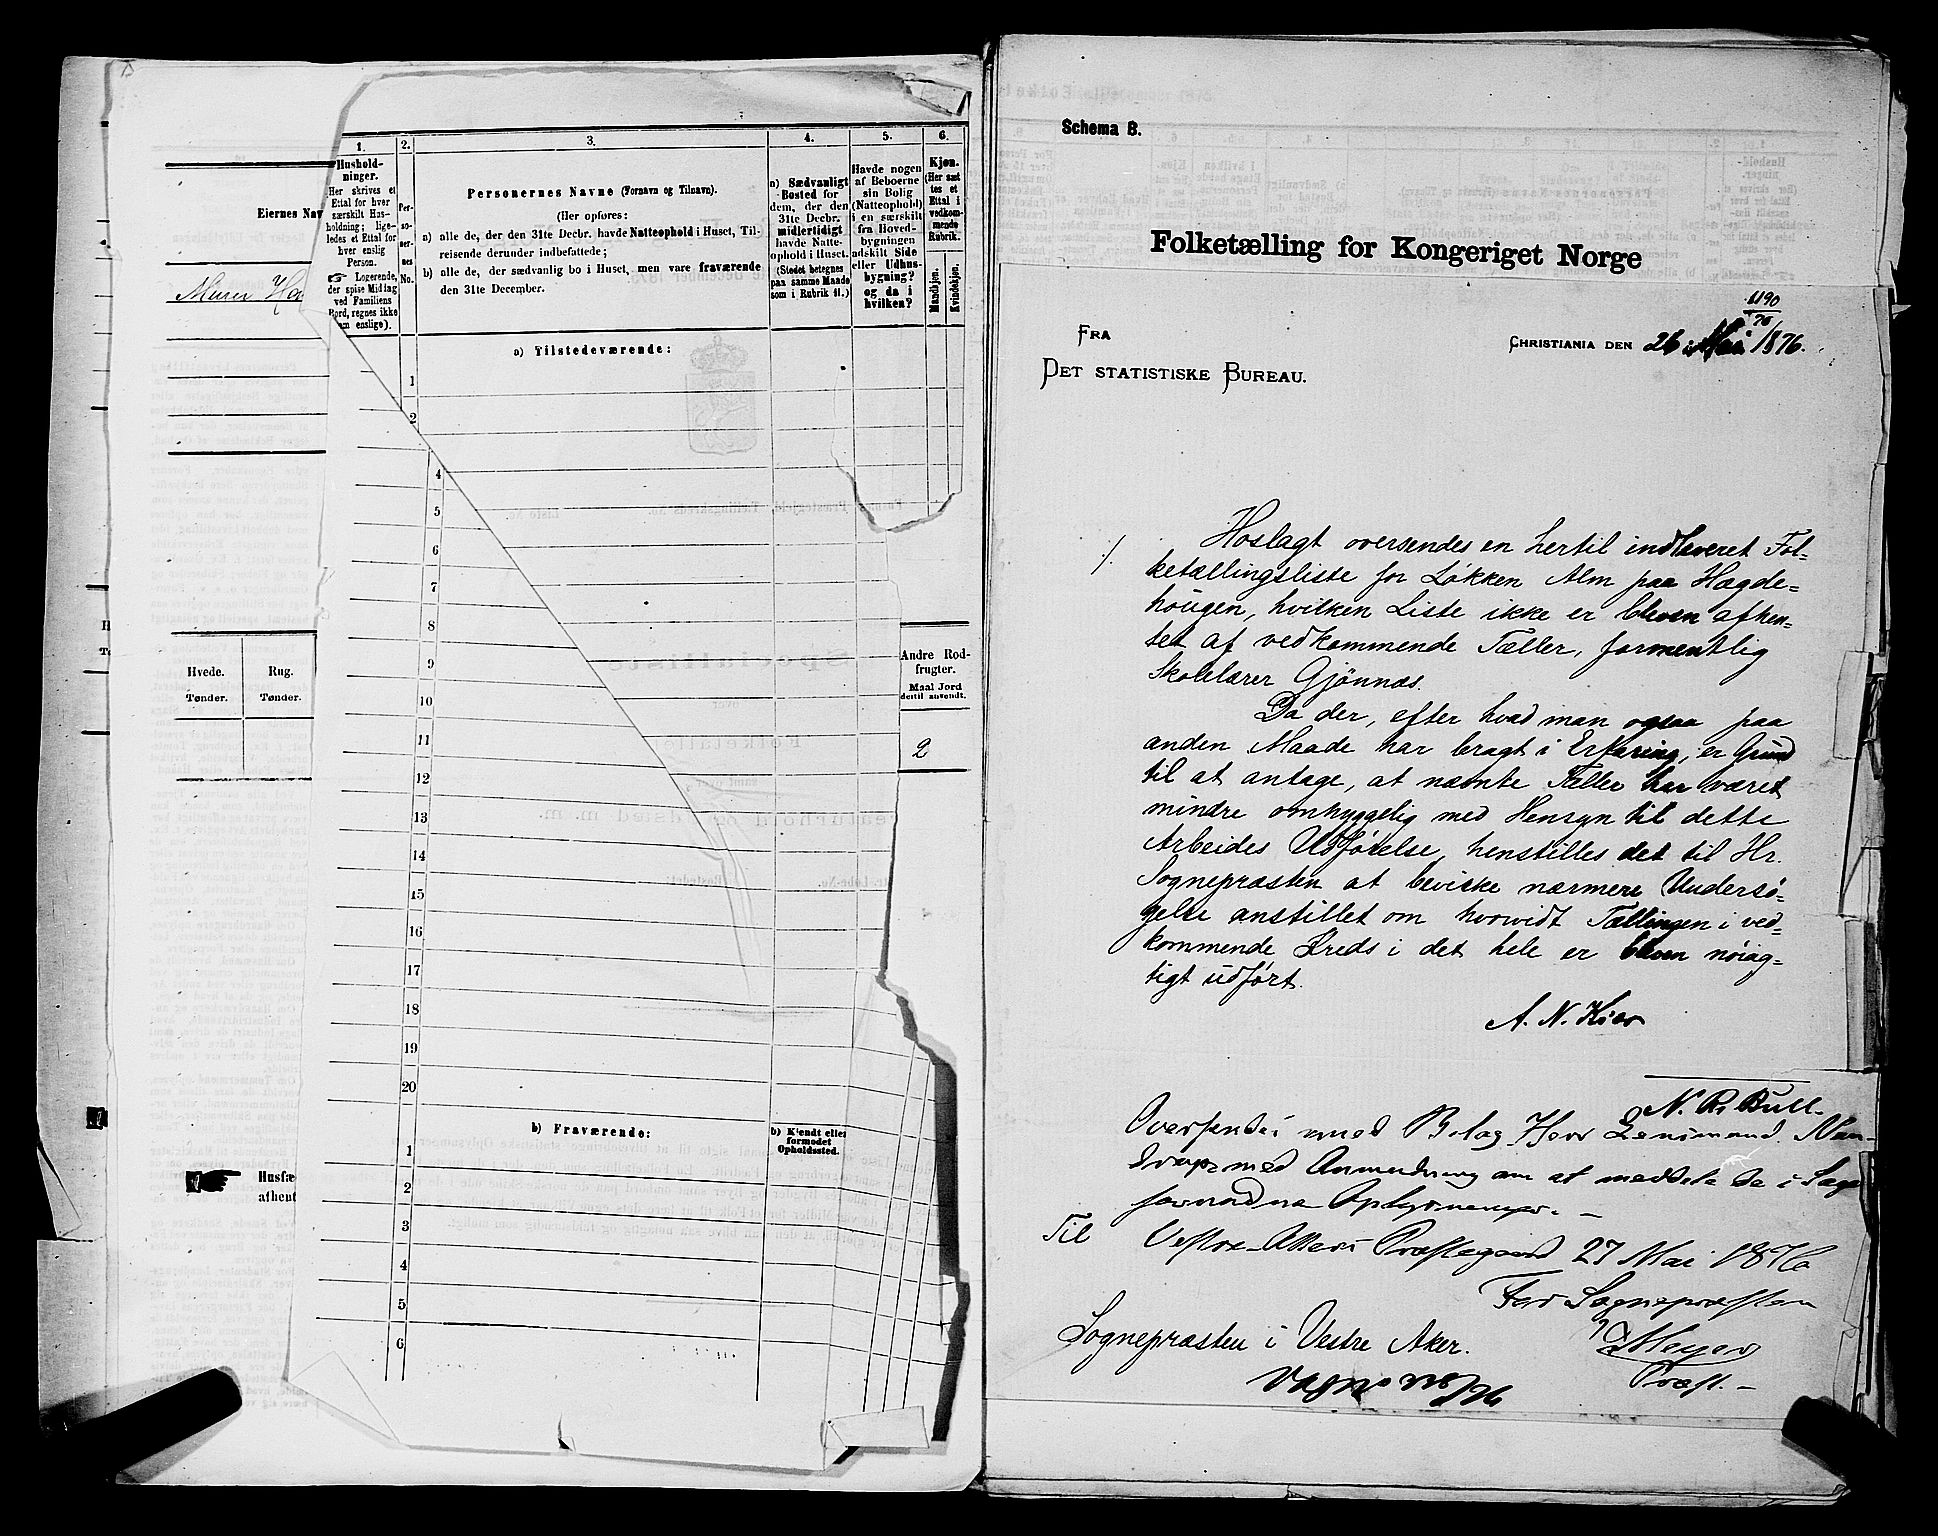 Eiernes Nav
Murer Ha
Hvede. Rug.
Tønder. Tønder.
Husfæ
afhent
1. 2. 3. 4. 5. 6.
Hushold-
ninger.
Her skrives et
Ettal for hver
særskilt Hus-
holdning; lige-
ledes et Ettal for
hver enslig
Person.
☞ Logerende,
der spise Middag
ved Familiens
Bord, regnes ikke
som enslige).
Per-
so-
ner-
nes
No.
Personernes Navne (Fornavn og Tilnavn).
(Her opføres:
a) alle de, der den 31te Decbr. havde Natteophold i Huset, Til-
reisende derunder indbefattede;
b) alle de, der sædvanlig bo i Huset, men vare fraværende
den 31te December.
a) Sædvanligt
Bosted for
dem, der den
31te Decbr.
midlertidigt
havde Natte-
ophold i Huset.
(Stedet betegnes
paa samme Maade
som i Rubrik 11.)
Havde nogen
af Beboerne
sin Bolig
(Natteophold)
i en særskilt
fra Hoved-
bygningen
adskilt Side
eller Udhus-
bygning?
og da i
hvilken?
Kjøn.
(Her sæt
tes et
Ettal i
vedkom-
mende
Rubrik.
Mandkjøn.
Kvindekjøn.
a) Tilstedeværende:
1
2
4
5
6
7
8
9
10
11
12
13
14
15
16
17
18
19
20
b) Fraværende:
b) Kjendt eller
formodet
Opholdssted.
1
2
3
4
5
6
Andre Rod-
frugter.
Maal Jord
dertil anvendt.
2
Schema B.
Folketælling for Kongeriget Norge
1190
76
FRA
CHRISTIANIA DEN 26 Mai 1876.
DET STATISTISKE BUREAU.
./. Hoslagt oversendes en hertil indleveret Fol-
ketællingsliste for Løkken Alm paa Hægde-
hougen, hvilken Liste ikke er bleven afhen-
tet af vedkommende Tæller, formentlig
Skolelærer Gjønnæs.
Da der, efter hvad man ogsaa paa
anden Maade har bragt i Erfaring, er Grund
til at antage, at nævnte Tæller har været
mindre omhyggelig med Hensyn til dette
Arbeides Udførelse, henstilles det til Hr.
Sognepræsten at bevirke nærmere Undersø-
gelse anstillet om hvorvidt Tællingen i ved-
kommende Kreds i det hele er bleven nøiag-
tigt udført.
A. N. Kiær
N. R. Bull
Oversendes med Bilag Herr Lensmand
med Anmodning om at meddele de i Sagen
fornødne Oplysninger. —
Til
Vestre Akers Præstegaard 27 Mai 1876
For Sognepræsten
Meyer
Præst. —
Sognepræsten i Vestre Aker.